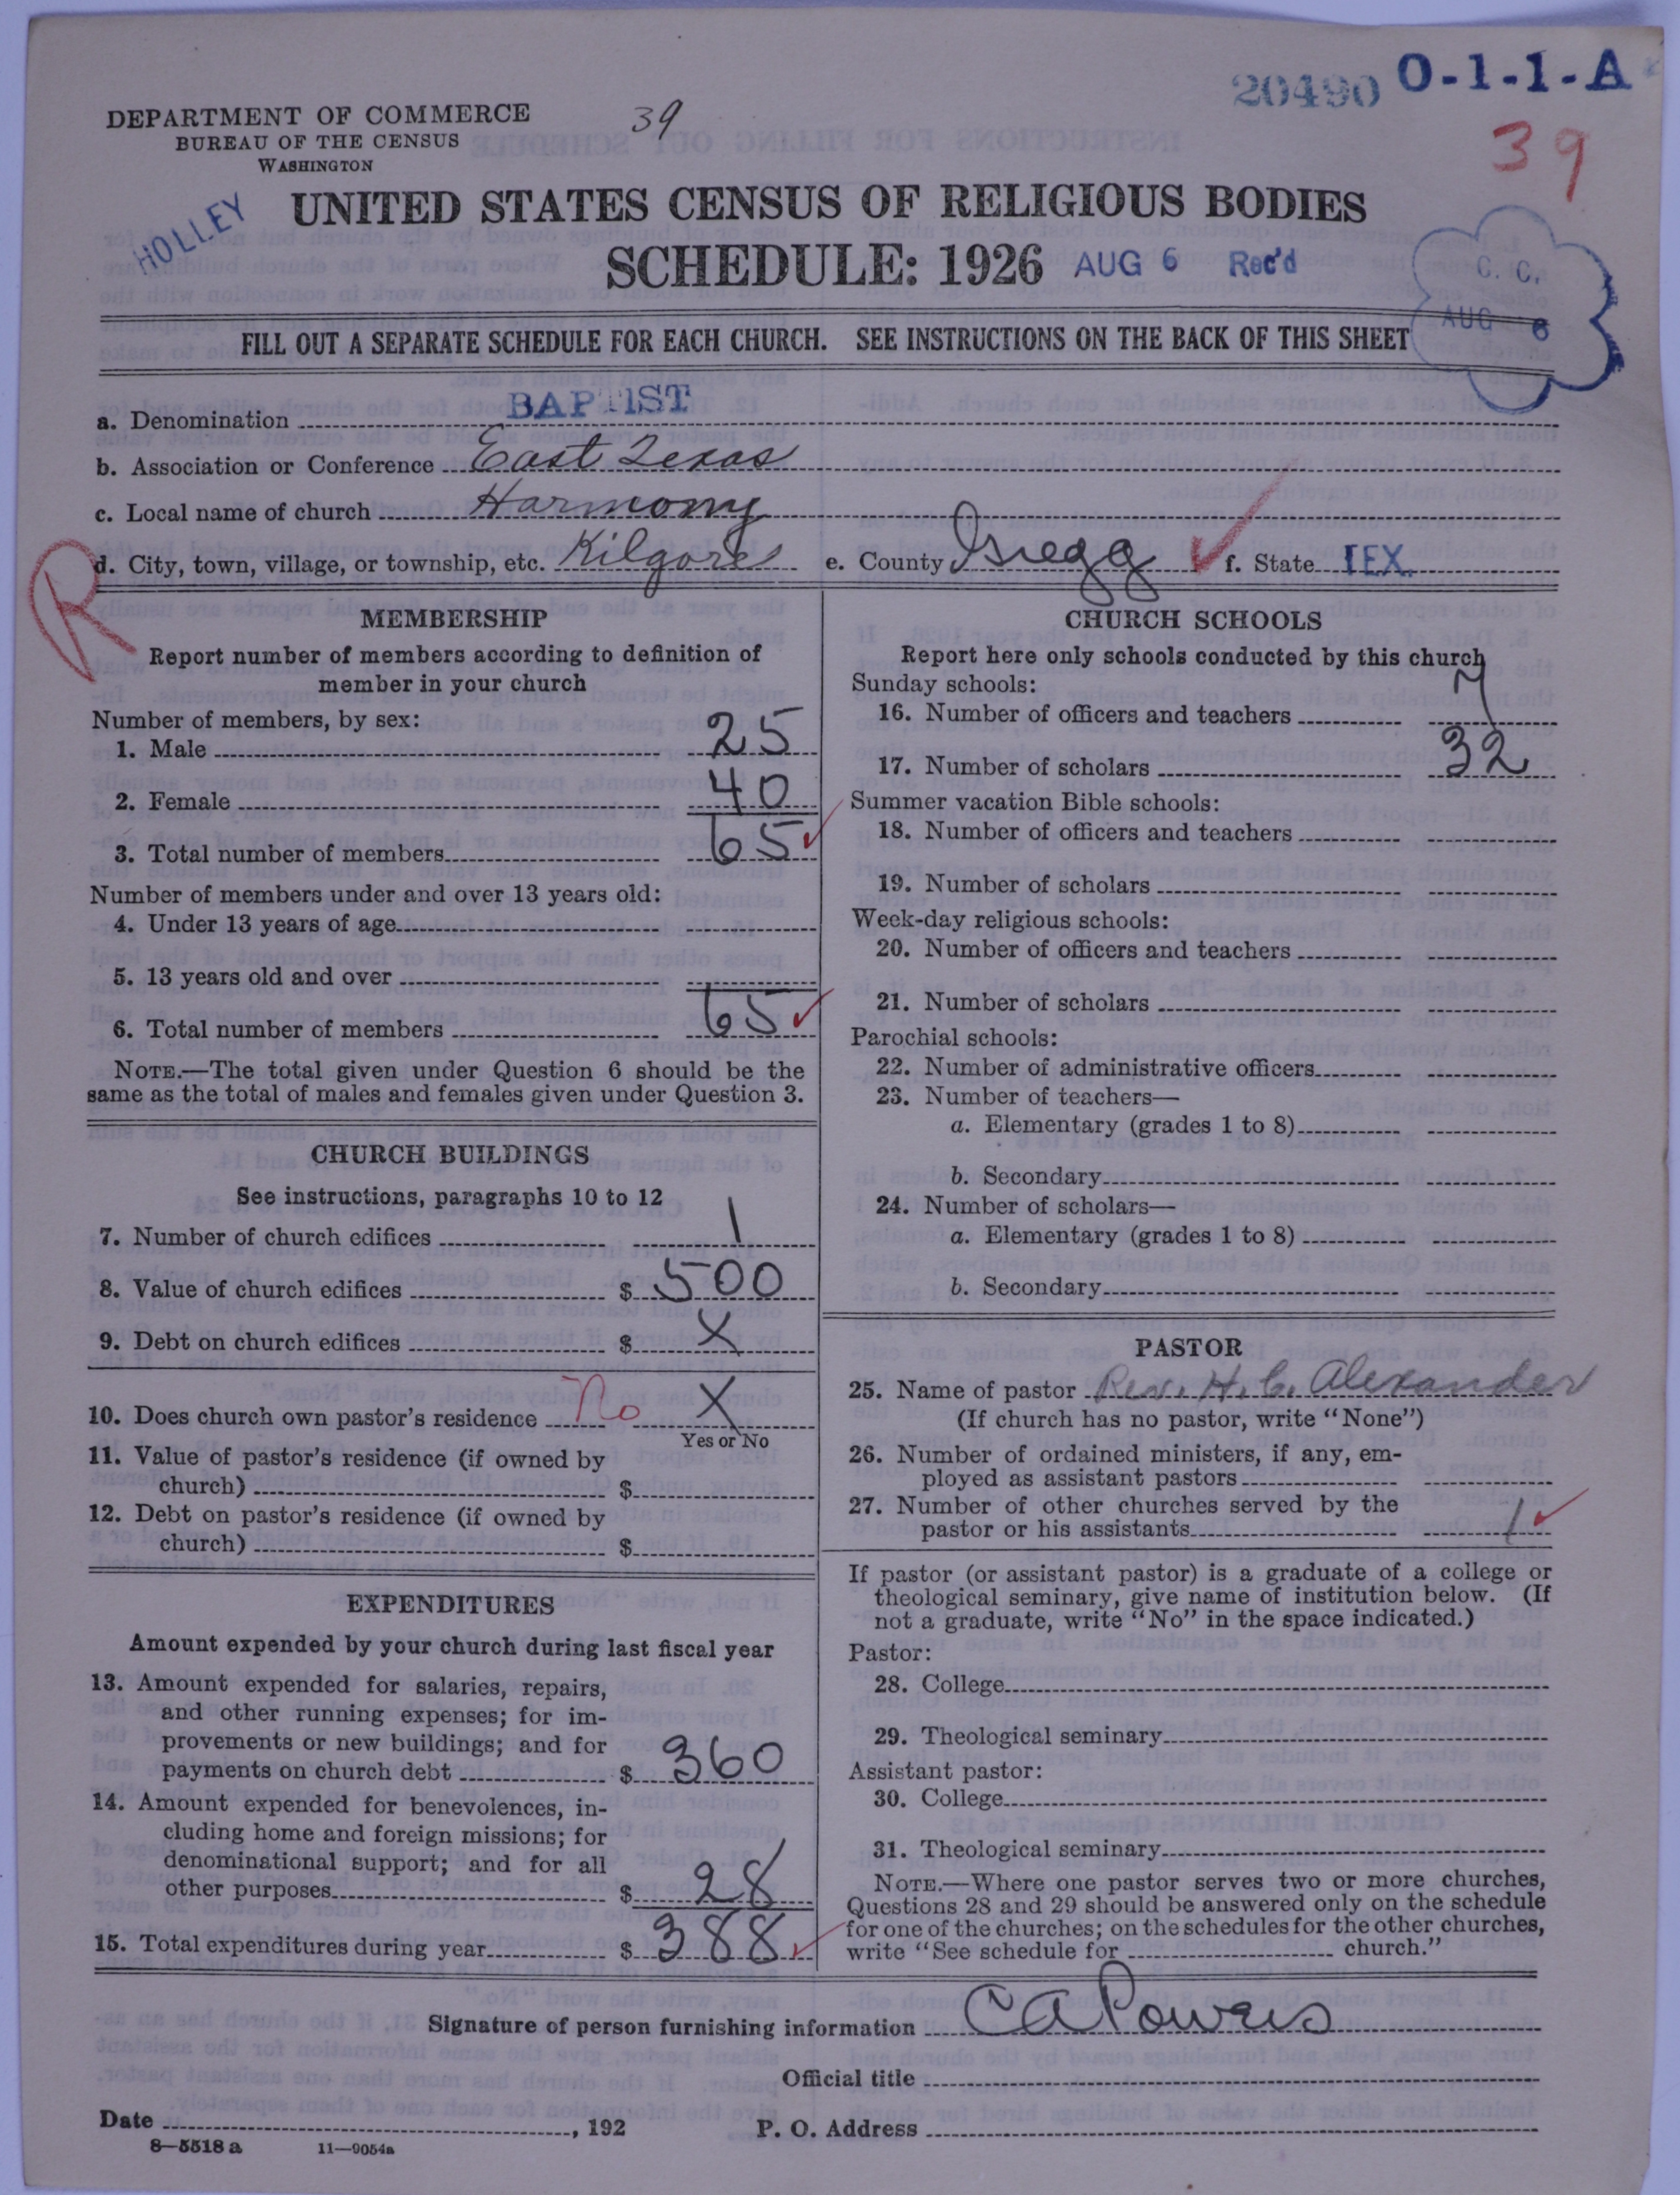 20490 O-1-1-A
DEPARTMENT OF COMMERCE
BUREAU OF THE CENSUS
WASHINGTON
39
39
HOLLEY
UNITED STATES CENSUS OF RELIGIOUS BODIES
SCHEDULE: 1926 AUG 6 Rec'd
C. C.
AUG 6
FILL OUT A SEPARATE SCHEDULE FOR EACH CHURCH. SEE INSTRUCTIONS ON THE BACK OF THIS SHEET
a. Denomination BAPTIST
b. Association or Conference East Texas
c. Local name of church Harmony
R
d. City, town, village, or township, etc. Kilgore e. County Gregg f. State TEX.
MEMBERSHIP
Report number of members according to definition of
member in your church
Number of members, by sex:
1. Male 25
2. Female 40
3. Total number of members 65
Number of members under and over 13 years old:
4. Under 13 years of age
5. 13 years old and over
6. Total number of members 65
NOTE.—The total given under Question 6 should be the
same as the total of males and females given under Question 3.
CHURCH BUILDINGS
See instructions, paragraphs 10 to 12
7. Number of church edifices 1
8. Value of church edifices $ 500
9. Debt on church edifices $ X
10. Does church own pastor's residence No X
Yes or No
11. Value of pastor's residence (if owned by
church) $
12. Debt on pastor's residence (if owned by
church) $
EXPENDITURES
Amount expended by your church during last fiscal year
13. Amount expended for salaries, repairs,
and other running expenses; for im-
provements or new buildings; and for
payments on church debt $ 360
14. Amount expended for benevolences, in-
cluding home and foreign missions; for
denominational support; and for all
other purposes $ 28
15. Total expenditures during year $ 388
CHURCH SCHOOLS
Report here only schools conducted by this church
Sunday schools:
16. Number of officers and teachers 7
17. Number of scholars 32
Summer vacation Bible schools:
18. Number of officers and teachers
19. Number of scholars
Week-day religious schools:
20. Number of officers and teachers
21. Number of scholars
Parochial schools:
22. Number of administrative officers
23. Number of teachers—
a. Elementary (grades 1 to 8)
b. Secondary
24. Number of scholars—
a. Elementary (grades 1 to 8)
b. Secondary
PASTOR
25. Name of pastor Rev. H. C. Alexander
(If church has no pastor, write "None")
26. Number of ordained ministers, if any, em-
ployed as assistant pastors
27. Number of other churches served by the
pastor or his assistants 1
If pastor (or assistant pastor) is a graduate of a college or
theological seminary, give name of institution below. (If
not a graduate, write "No" in the space indicated.)
Pastor:
28. College
29. Theological seminary
Assistant pastor:
30. College
31. Theological seminary
NOTE.—Where one pastor serves two or more churches,
Questions 28 and 29 should be answered only on the schedule
for one of the churches; on the schedules for the other churches,
write "See schedule for church."
Signature of person furnishing information C A Powers
Official title
Date , 192 P. O. Address
8—5518 a 11—9054a